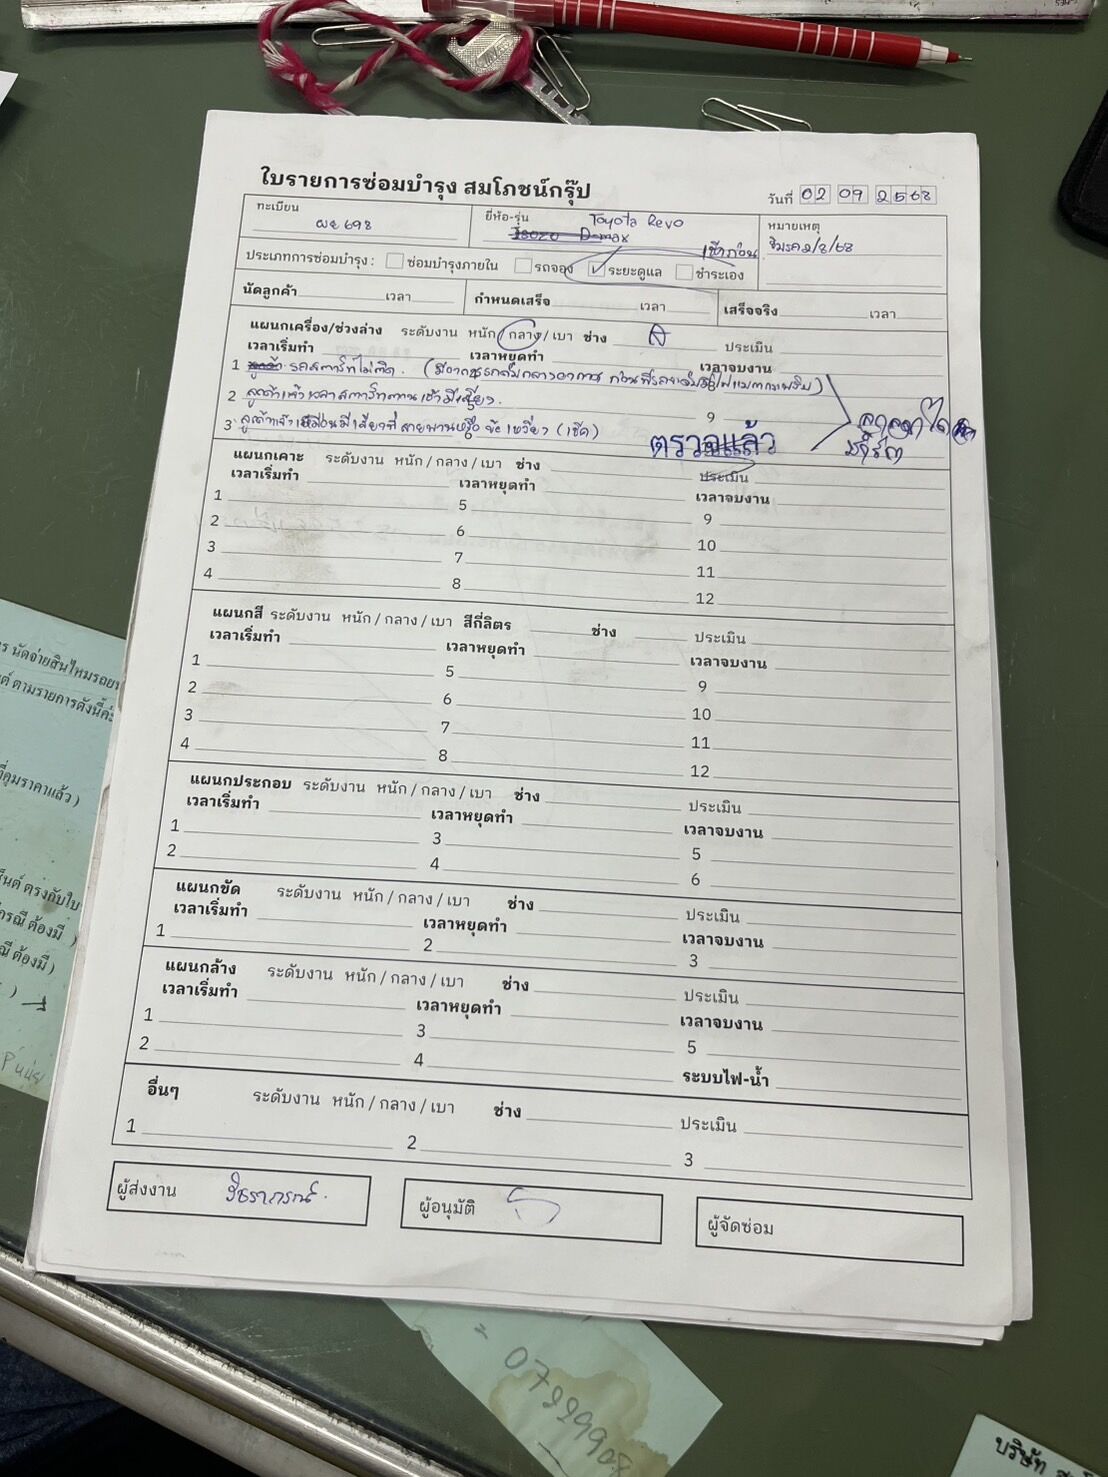 ใบรายการซ่อมบำรุง สมโภชน์กรุ๊ป
วันที่ 02 09 2568
ทะเบียน ผย 698
ยี่ห้อ-รุ่น Toyota Revo
Isuzu D-max
หมายเหตุ
ประเภทการซ่อมบำรุง : ซ่อมบำรุงภายใน รถจอง ระยะดูแล ชำระเอง
นัดลูกค้า เวลา กำหนดเสร็จ เวลา เสร็จจริง เวลา
แผนกเครื่อง/ช่วงล่าง ระดับงาน หนัก/กลาง/เบา ช่าง ประเมิน
เวลาเริ่มทำ เวลาหยุดทำ เวลาจบงาน
1 รถสตาร์ทไม่ติด
2 ลูกค้าแจ้งเวลาสตาร์ทตอนเช้ามีเสียง
9
3 (เช็ค)
ตรวจแล้ว
แผนกเคาะ ระดับงาน หนัก / กลาง / เบา ช่าง ประเมิน
เวลาเริ่มทำ เวลาหยุดทำ เวลาจบงาน
1 5 9
2 6 10
3 7 11
4 8 12
แผนกสี ระดับงาน หนัก / กลาง / เบา สีกี่ลิตร ช่าง ประเมิน
เวลาเริ่มทำ เวลาหยุดทำ เวลาจบงาน
1 5 9
2 6 10
3 7 11
4 8 12
แผนกประกอบ ระดับงาน หนัก / กลาง / เบา ช่าง ประเมิน
เวลาเริ่มทำ เวลาหยุดทำ เวลาจบงาน
1 3 5
2 4 6
แผนกขัด ระดับงาน หนัก / กลาง / เบา ช่าง ประเมิน
เวลาเริ่มทำ เวลาหยุดทำ เวลาจบงาน
1 2 3
แผนกล้าง ระดับงาน หนัก / กลาง / เบา ช่าง ประเมิน
เวลาเริ่มทำ เวลาหยุดทำ เวลาจบงาน
1 3 5
2 4 ระบบไฟ-น้ำ
อื่นๆ ระดับงาน หนัก / กลาง / เบา ช่าง ประเมิน
1 2 3
ผู้ส่งงาน
ผู้อนุมัติ
ผู้จัดซ่อม
นัดจ่ายสินไหมรถย
ตามรายการดังนี้ค่ะ
คุมราคาแล้ว )
ตรงกับใบ
ต้องมี )
ต้องมี )
บริษัท